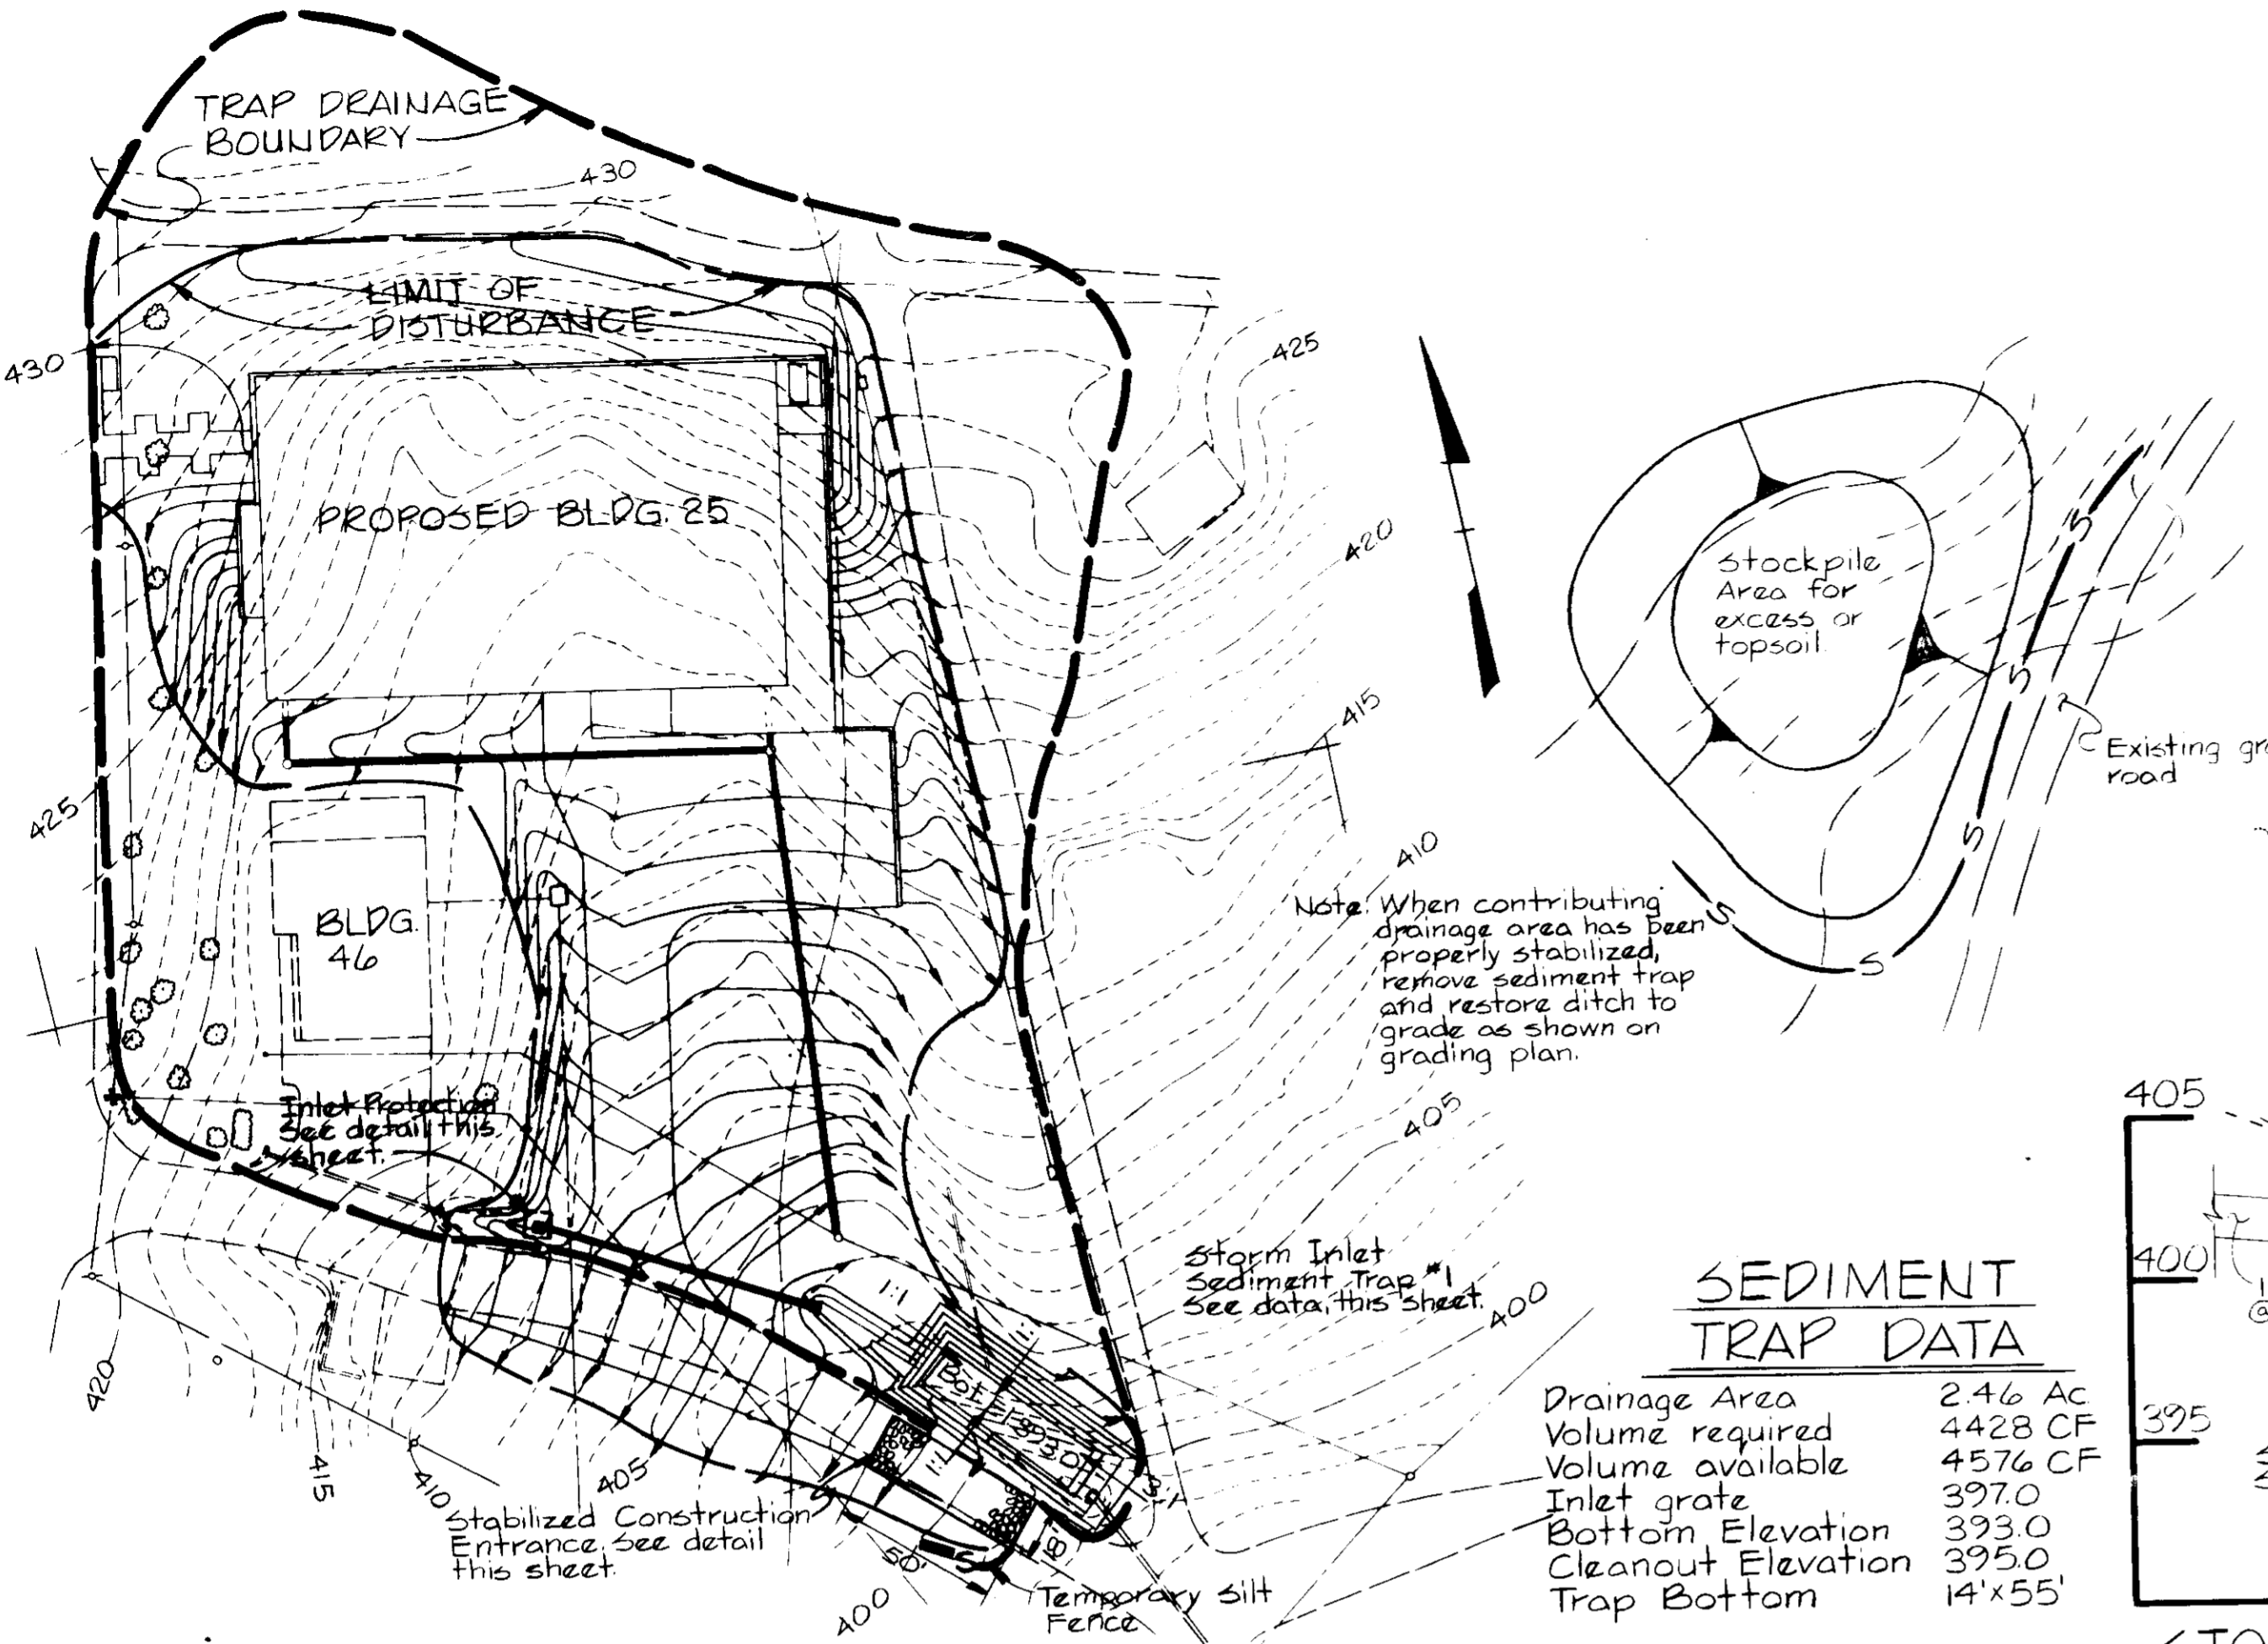 TRAP DRAINAGE
BOUNDARY
430
LIMIT OF
DISTURBANCE
430
425
PROPOSED BLDG. 25
420
Stockpile
Area for
excess or
topsoil.
S
S
415
Existing
road
425
S
410
BLDG.
46
Note: When contributing
drainage area has been
properly stabilized,
remove sediment trap
and restore ditch to
grade as shown on
grading plan.
S
S
Inlet Protection
See detail this
sheet.
405
405
Storm Inlet
Sediment Trap #1
See data, this sheet.
400
1:1
1:1
Bot. El 893.0
1:1
3:1
420
415
410
405
S
Stabilized Construction
Entrance. See detail
this sheet.
50'
S
18
400
Temporary Silt
Fence
SEDIMENT
TRAP DATA
Drainage Area 2.46 Ac.
Volume required 4428 CF
Volume available 4576 CF
Inlet grate 397.0
Bottom Elevation 393.0
Cleanout Elevation 395.0
Trap Bottom 14'x55'
400
395